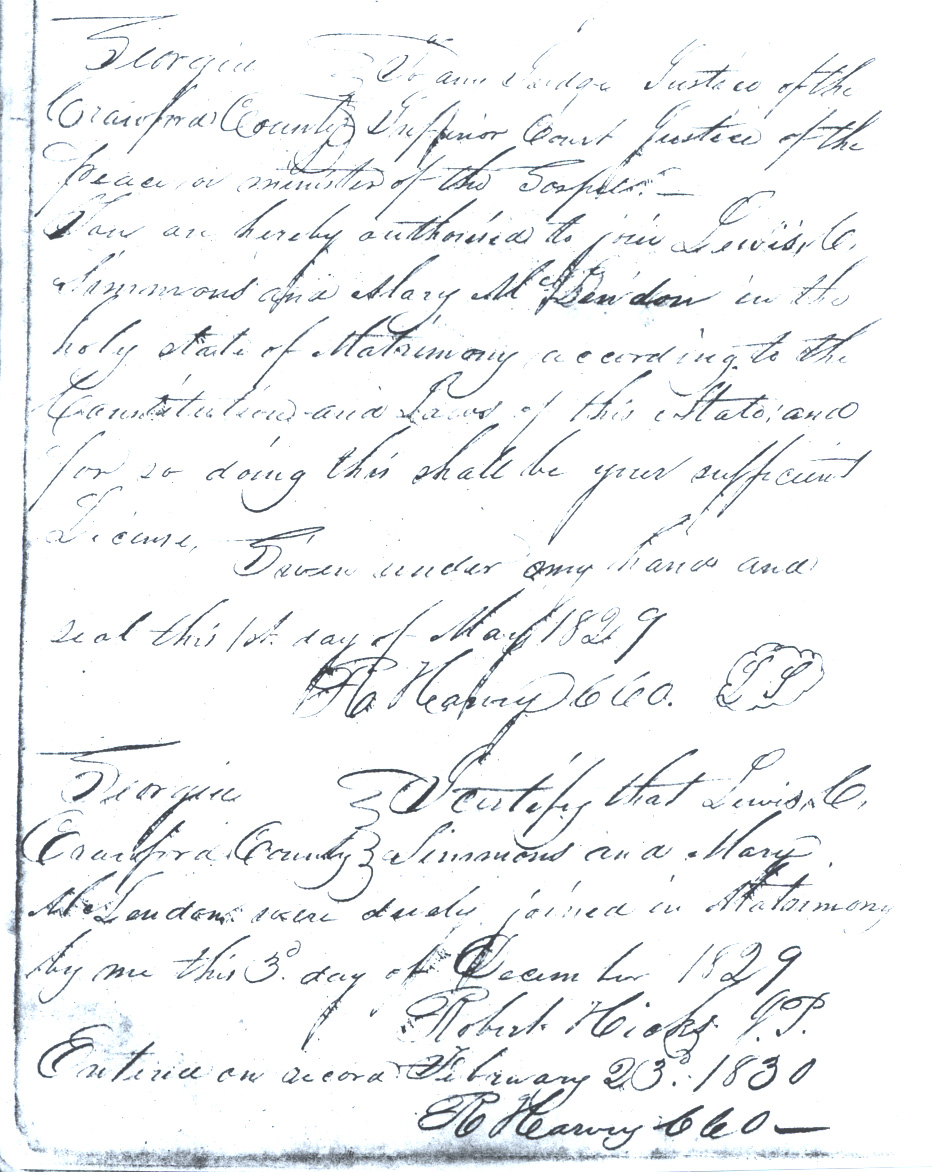 Georgia } To any Judge Justice of the
Crawford County } Inferior Court Justice of the
peace or minister of the Gospel. —
You are hereby authorised to join Lewis, C.
Simmons and Mary McLendon in the
holy state of Matrimony, according to the
Constitution and Laws of this State, and
for so doing this shall be your sufficient
License, Given under my hand and
seal this 1st. day of May 1829
R Harvey CCO. LS
Georgia } I certify that Lewis, C.
Crawford County } Simmons and Mary
McLendon were duely joined in Matrimony
by me this 3d. day of December 1829
Robert Hicks J.P.
Entered on record February 23d. 1830
R Harvey CCO —